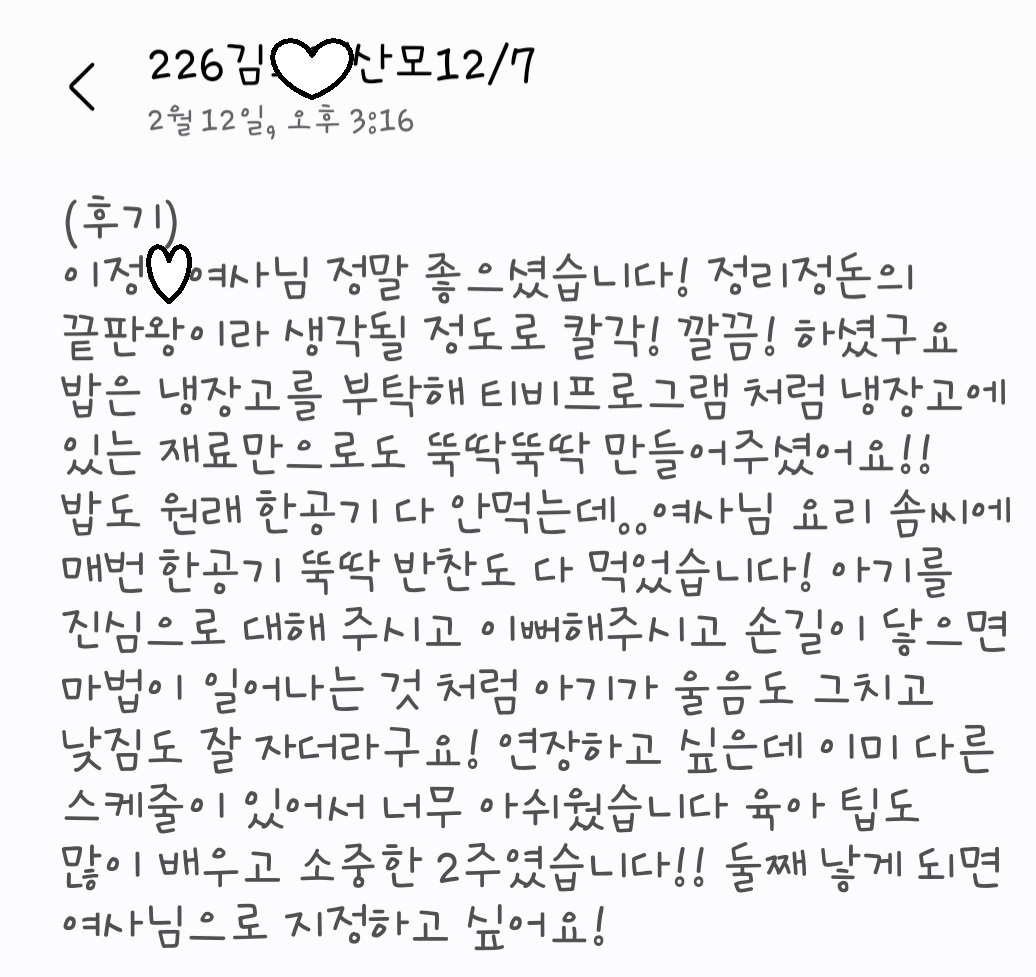 226김 산모12/7
2월 12일, 오후 3:16
(후기)
이정 여사님 정말 좋으셨습니다! 정리정돈의
끝판왕이라 생각될 정도로 칼각! 깔끔! 하셨구요
밥은 냉장고를 부탁해 티비프로그램 처럼 냉장고에
있는 재료만으로도 뚝딱뚝딱 만들어주셨어요!!
밥도 원래 한공기 다 안먹는데..여사님 요리 솜씨에
매번 한공기 뚝딱 반찬도 다 먹었습니다! 아기를
진심으로 대해 주시고 이뻐해주시고 손길이 닿으면
마법이 일어나는 것 처럼 아기가 울음도 그치고
낮짐도 잘 자더라구요! 연장하고 싶은데 이미 다른
스케줄이 있어서 너무 아쉬웠습니다 육아 팁도
많이 배우고 소중한 2주였습니다!! 둘째 낳게 되면
여사님으로 지정하고 싶어요!